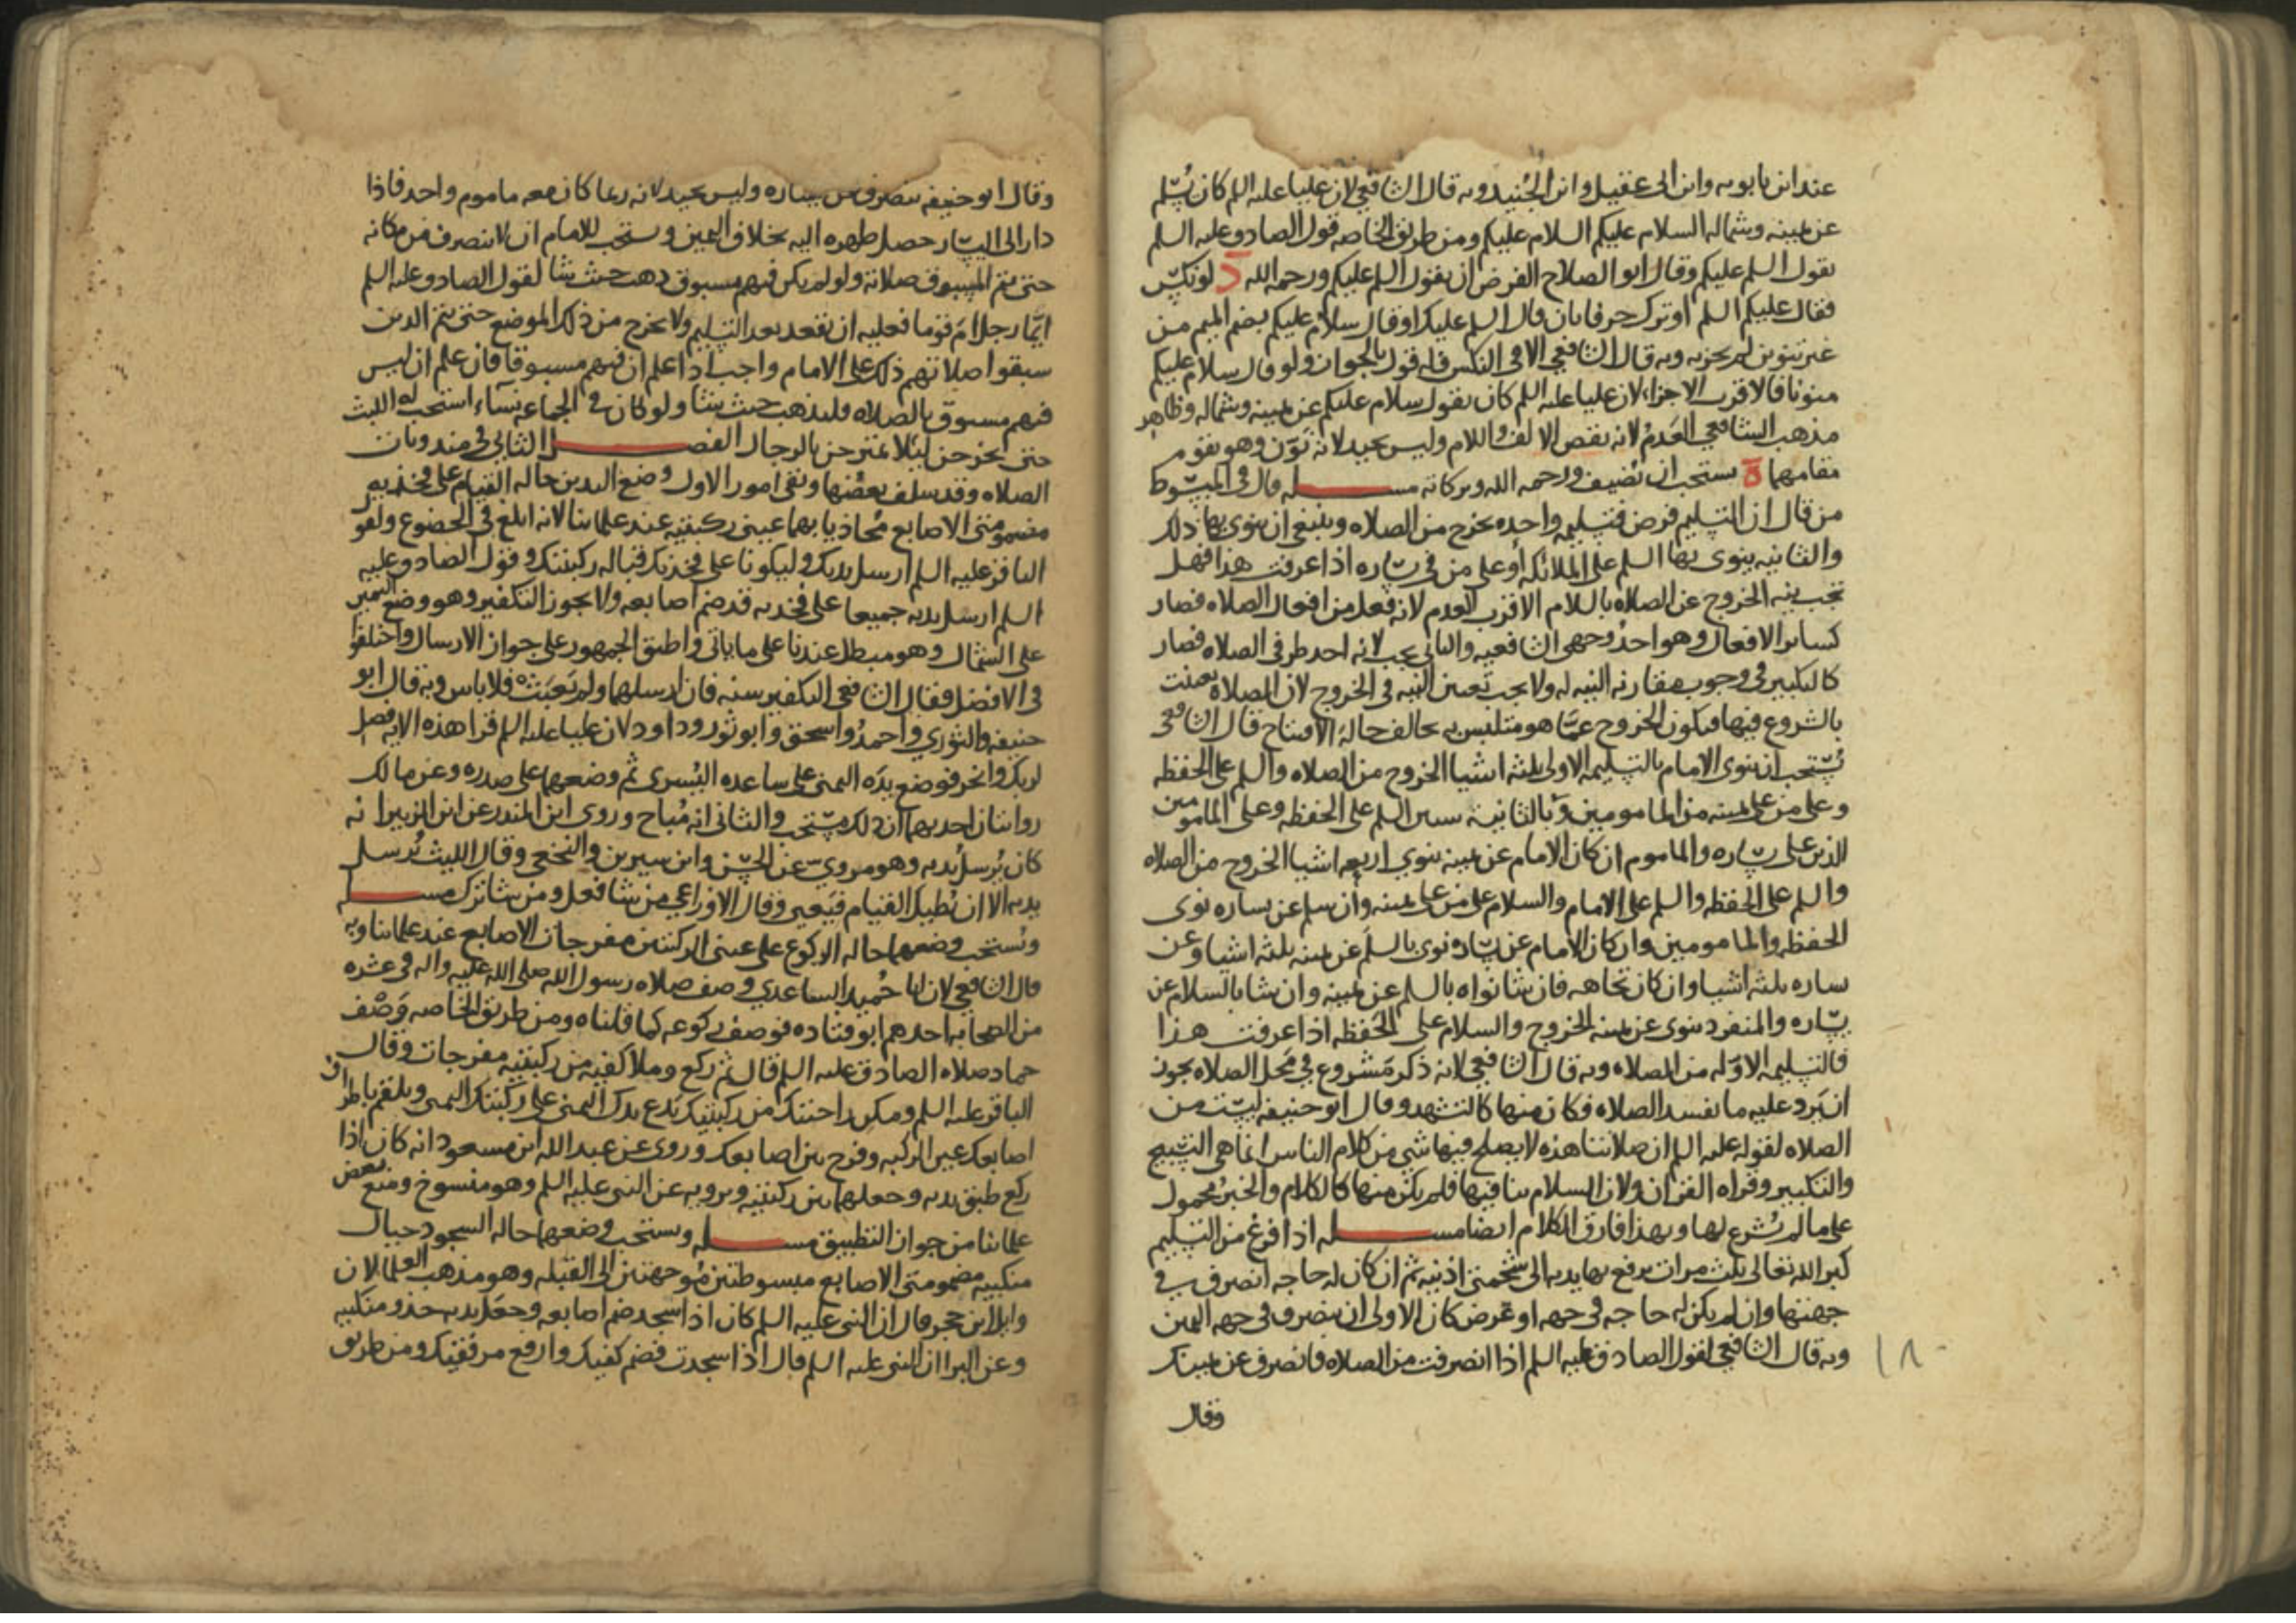 عند ابن بابويه وابن ابى عقيل وابن الجنيد وبه قال الشافعي لان عليا عليه السلم كان يُسلم
عن يمينه وشماله السلام عليكم السلام عليكم ومن طريق الخاصه قول الصادق عليه السلم
يقول السلم عليكم وقال ابو الصلاح الفرض ان يقول السلم عليكم ورحمه الله د لو نكس
فقال عليكم السلم او ترك حرفا بان قال السلم عليك او قال سلام عليكم بضم الميم من
غير تنوين لم يجزيه وبه قال الشافعي الا فى النكس فله قول بالجواز ولو قال سلام عليكم
منونا فالاقرب الاجزاء لان عليا عليه السلم كان يقول سلام عليكم عن يمينه وشماله وظاهر
مذهب الشافعي العَدم لانه نقص الالف واللام وليس بجيد لانه نوّن وهو يقوم
مقامهما ة يستحب ان يضيف ورحمه الله وبركاته مسله قال فى المبسوط
من قال ان التسليم فرض فتسليمه واحده يخرج من الصلاه وينبغي ان ينوى بها ذلك
والثانيه ينوى بها السلم على الملائكه او على من فى يساره اذا عرفت هذا فهل
تجب نيه الخروج عن الصلاه بالسلام الاقرب العدم لانه فعل من افعال الصلاه فصار
كسائر الافعال وهو احد وجهى الشافعيه والثانى يجب لانه احد طرفى الصلاه فصار
كالتكبير فى وجوب مقارنه النيه له ولا يجب تعيين النيه فى الخروج لان الصلاه تعينت
بالشروع فيها فيكون الخروج عمّا هو متلبس به بخالف حالة الافتتاح قال الشافعى
يُستحب ان ينوى الامام بالتسليمه الاولى ثلثه اشيا الخروج من الصلاه والسلم على الحفظه
وعلى من على يمينه من المامومين وبالثانية سيين السلم على الحفظه وعلى المامومين
الذين على يساره والماموم ان كان الامام عن يمينه ينوي اربعه اشيا الخروج من الصلاه
والسلم على الحفظه والسلم على الامام والسلام على من على يمينه وان سلم عن يساره نوى
الحفظه والمامومين وان كان الامام عن يساره نوى بالسلم عن يمينه ثلثه اشيا وعن
ساره ثلثه اشيا وان كان تجاهه فان شا نواه بالسلم عن يمينه وان شا بالسلام عن
يساره والمنفرد ينوى عن يمينه الخروج والسلام على الحفظه اذا عرفت هذا
فالتسليمه الاوله من الصلاه وبه قال الشافعي لانه ذكر مشروع في محل الصلاه يجوز
ان يَرد عليه ما يفسد الصلاه فكان منها كالتشهد وقال ابو حنيفه ليست من
الصلاه لقوله عليه السلم ان صلاتنا هذه لا يصلح فيها شى من كلام الناس انما هى التسبيح
والتكبير وقراه القران ولان السلام ينافيها فلم يكن منها كالكلام والخبر محمول
على ما لم يُشرع لها وبهذا فارق الكلام ايضا مسله اذا فرغ من التسليم
كبر الله تعالى ثلث مرات يرفع بها يديه الى شحمتى اذنيه ثم ان كان له حاجه انصرف فى
جهتها وان لم يكن له حاجه فى جهه او غرض كان الاولى ان ينصرف فى جهه اليمين
وبه قال الشافعي لقول الصادق عليه السلم اذا انصرفت من الصلاه فانصرف عن يمينك
١٨
وقال
وقال ابو حنيفه ينصرف عن يساره وليس بجيد لانه ربما كان معه ماموم واحد فاذا
دار الى اليسار حصل ظهره اليه بخلاف اليمين ويستحب للامام ان لا ينصرف من مكانه
حتى يتم المسبوق صلاته ولو لم يكن فيهم مسبوق ذهب حيث شا لقول الصادق عليه السلم
ايّما رجل امّ قوما فعليه ان يقعد بعد التسليم ولا يخرج من ذلك الموضع حتى يتم الذين
سبقوا صلاتهم ذلك على الامام واجب اذا علم ان فيهم مسبوقا فان علم ان ليس
فيهم مسبوق بالصلاه فليذهب حيث يشا ولو كان فى الجماعه نساء استحب له اللبث
حتى يخرجن لئلا يمتزجن بالرجال الفصل الثانى فى مندوبات
الصلاه وقد سلف بعضها وبقى امور الاول وضع اليدين حاله القيام على فخذيه
مضمومتى الاصابع محاذيا بهما عينى ركبتيه عند علمائنا لانه ابلغ فى الخضوع ولقول
الباقر عليه السلم ارسل يديك وليكونا على فخذيك قباله ركبتيك وقول الصادق عليه
السلم ارسل يديه جميعا على فخذيه قد ضم اصابعه ولا يجوز التكفير وهو وضع اليمين
على الشمال وهو مبطل عندنا على ما ياتى واطبق الجمهور على جواز الارسال واختلفوا
فى الافضل فقال الشافعى التكفير سنه فان ارسلهما ولم يَعبث فلا باس وبه قال ابو
حنيفه والثوري واحمد واسحق وابو ثور وداود لان عليا عليه السلم قرا هذه الايه فصل
لربك وانحر فوضع يده اليمنى على ساعده اليُسرى ثم وضعهما على صدره وعن مالك
روايتان احديهما ان ذلك مستحب والثانى انه مُباح وروى ابن المنذر عن ابن الزبير انه
كان يُرسل يديه وهو مروي عن الحسن وابن سيرين والنخعى وقال الليث يُرسل
يديه الا ان يُطيل القيام فيَعيى وقال الاوزاعي من شا فعل ومن شا ترك مسله
ويُستحب وضعهما حاله الركوع على عينى الركبتين مفرجات الاصابع عند علمائنا وبه
قال الشافعي لان ابا حُميد الساعدي وصف صلاه رسول الله صلى الله عليه واله فى عشره
من الصحابه احدهم ابو قتاده فوصف ركوعه كما قلناه ومن طريق الخاصه وَصْف
حماد صلاه الصادق عليه السلم قال ثم ركع وملا كفيه من ركبتيه مفرجات وقال
الباقر عليه السلم ومكن راحتيك من ركبتيك تدع يدك اليمنى على ركبتك اليمى وبلقم باطراف
اصابعك عين الركبه وفرج بين اصابعك وروى عن عبد الله ابن مسعود انه كان اذا
ركع طبق يديه وجعلهما بين ركبتيه ويرويه عن النبى عليه السلم وهو منسوخ ومنع بعض
علمائنا من جواز التطبيق مسله ويستحب وضعهما حاله السجود حيال
منكبيه مضمومتى الاصابع مبسوطتين مُوجهتين الى القبله وهو مذهب العلما لان
وايل ابن حجر قال ان النبى عليه السلم كان اذا سجد ضم اصابعه وجعل يديه حذو منكبيه
وعن البرا ان النبى عليه السلم قال اذا سجدت فضم كفيك وارفع مرفقيك ومن طريق